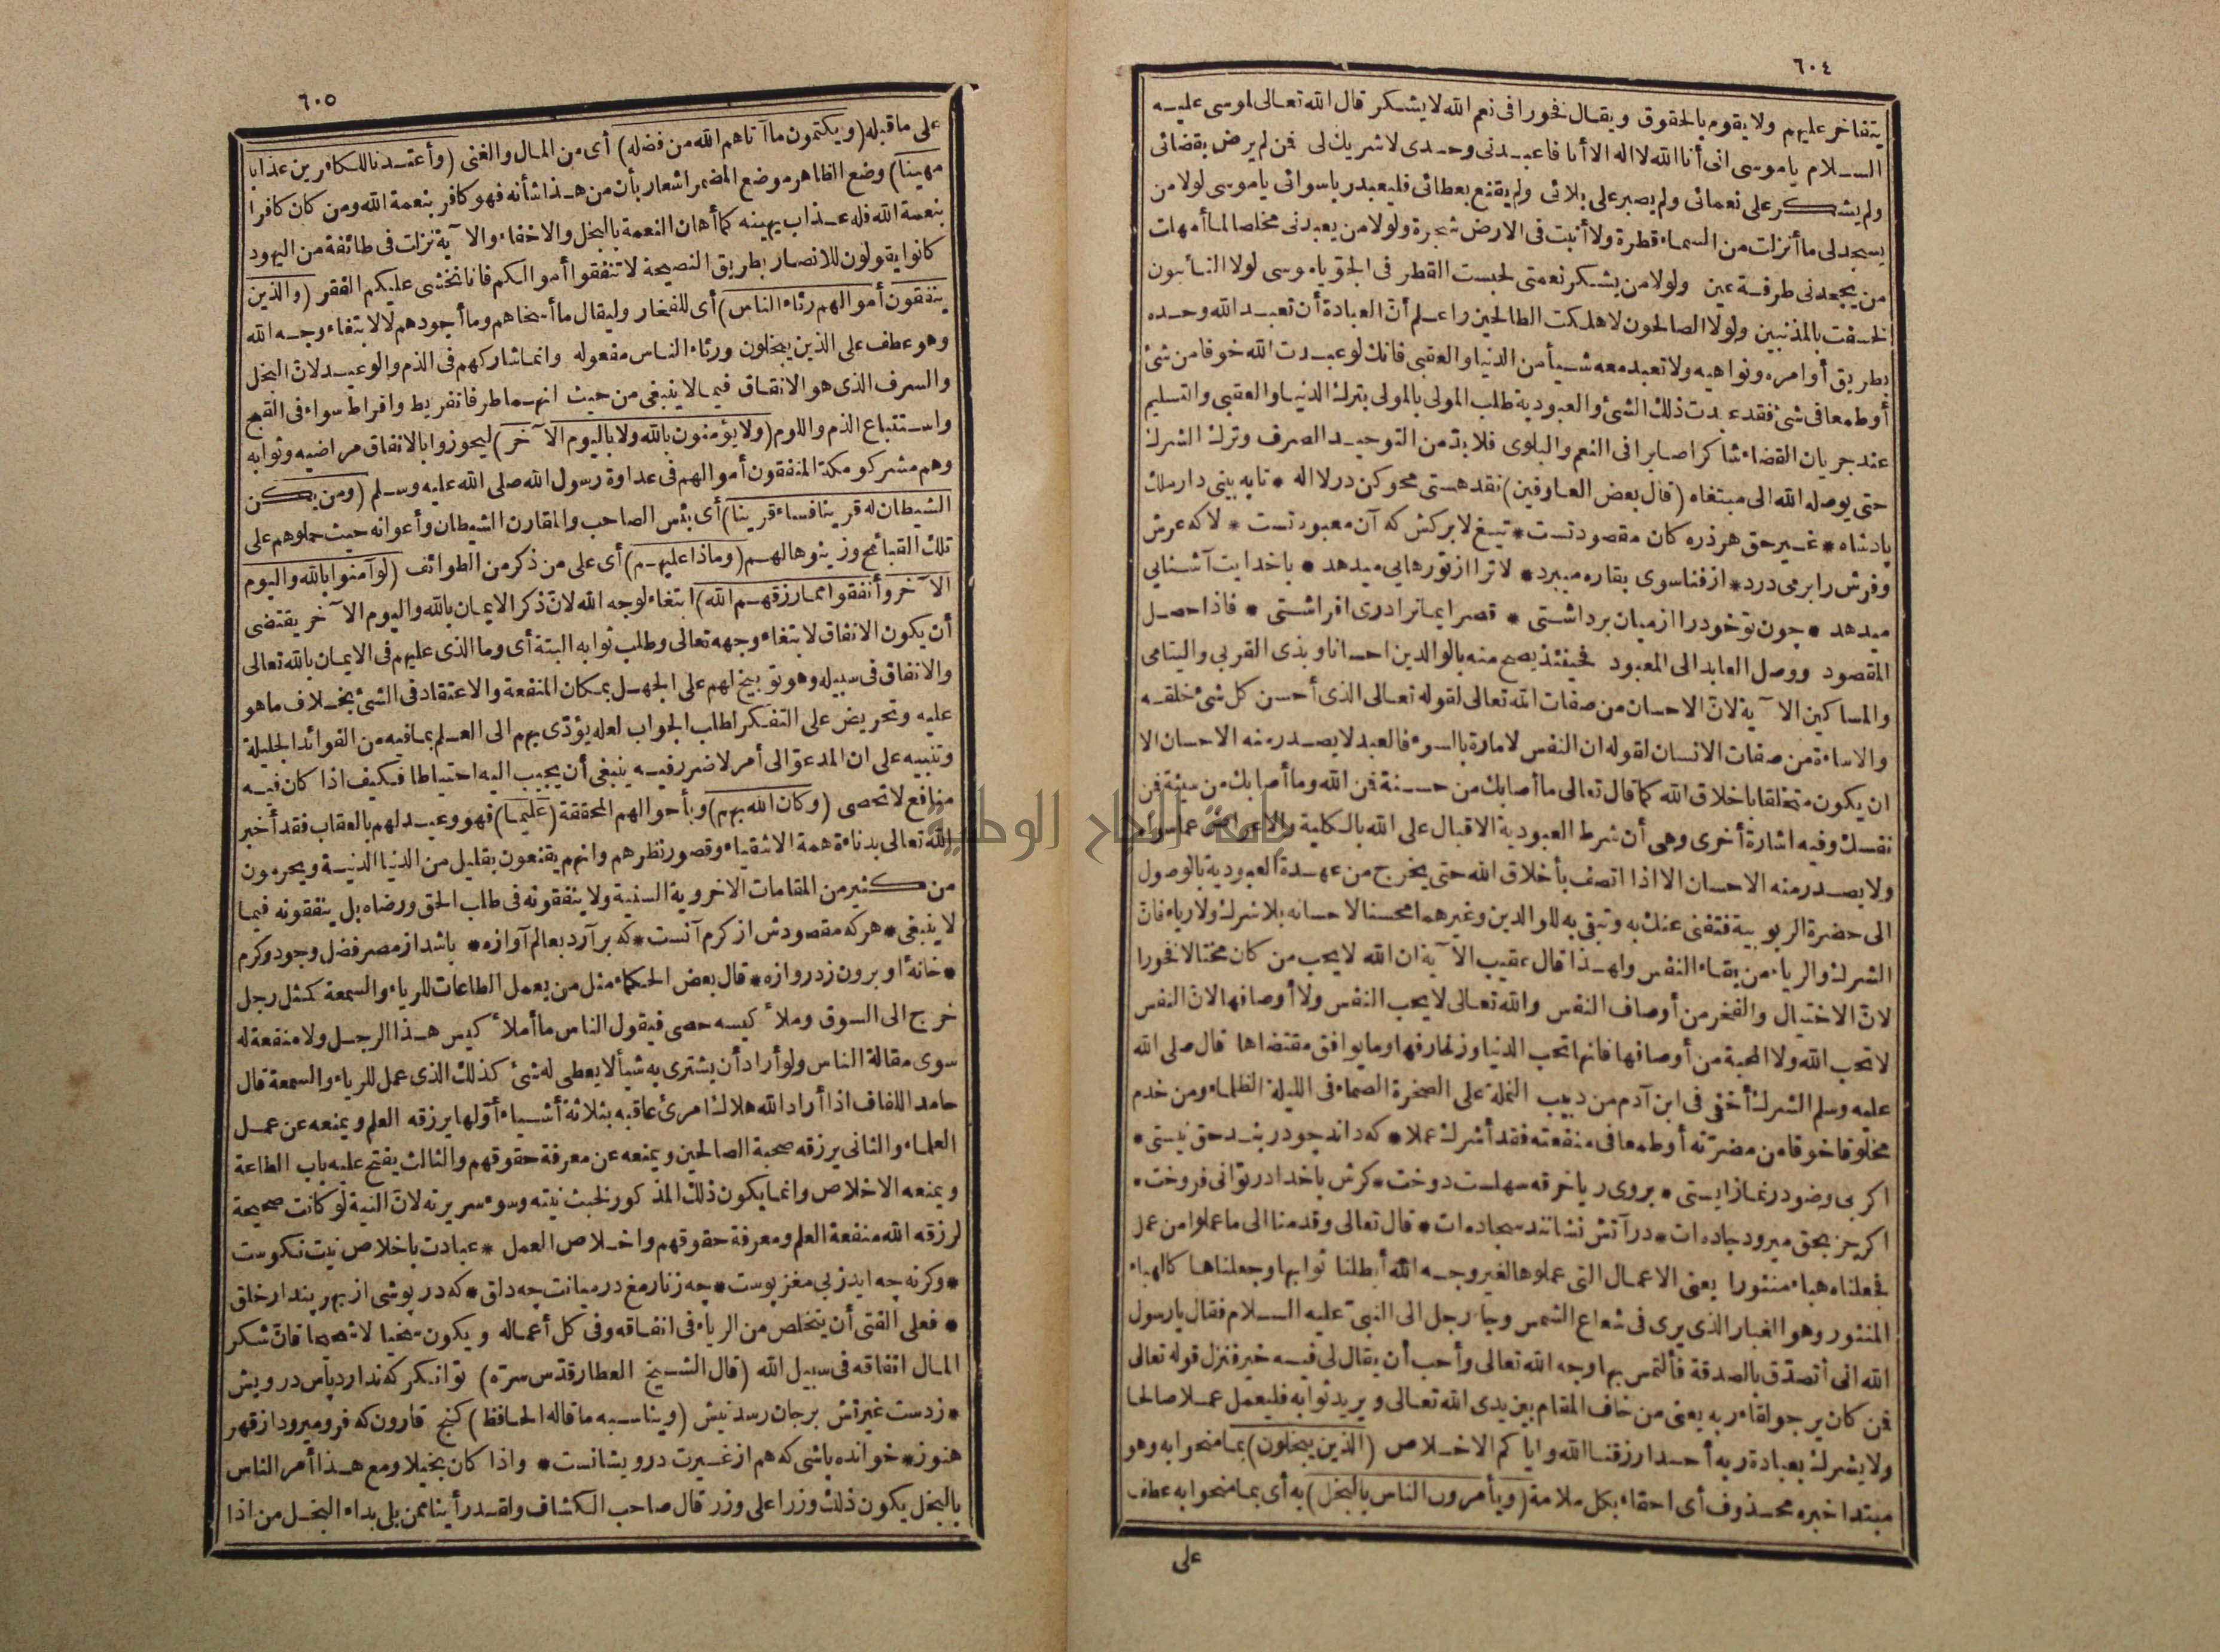 ٦٠٤
يتفاخر عليهم ولا يقوم بالحقوق ويقال فخورا فى نعم الله لا يشكر قال الله تعالى لموسى عليه
السلام ياموسى انى أنا الله لا اله الا أنا فاعبدنى وحدى لا شريك لى فمن لم يرض بقضائى
ولم يشكر على نعمائى ولم يصبر على بلائى ولم يقنع بعطائى فليعبد ربا سوائى ياموسى لولا من
يسجد لى ما أنزلت من السماء قطرة ولا أنبت فى الارض شجرة ولولا من يعبدنى مخلصا لما أمهلت
من يجحدنى طرفة عين ولولا من يشكر نعمتى لحبست القطر فى الجو ياموسى لولا التائبون
لخسفت بالمذنبين ولولا الصالحون لاهلكت الطالحين واعلم أن العبادة أن تعبد الله وحده
بطريق أوامره ونواهيه ولا تعبد معه شيأ من الدنيا والعقبى فانك لو عبدت الله خوفا من شئ
أو طمعا فى شئ فقد عبدت ذلك الشئ والعبودية طلب المولى بالمولى بترك الدنيا والعقبى والتسليم
عند جريان القضاء شاكرا صابرا فى النعم والبلوى فلا بدّ من التوحيد الصرف وترك الشرك
حتى يوصله الله الى مبتغاه (قال بعض العارفين) نقد هستى محوكن در لا اله * تا به بينى دار ملك
پادشاه * غير حق هر ذره كان مقصود تست * تيغ لا بركش كه آن معبود تست * لا كه عرش
وفرش را برمى درد * از فنا سوى بقا ره ميبرد * لا ترا از تو رهايى ميدهد * با خدايت آشنايى
ميدهد * چون تو خود را از ميان برداشتى * قصر ايمانرا درى افراشتى * فاذا حصل
المقصود ووصل العابد الى المعبود فحينئذ يصح منه بالوالدين احسانا وبذى القربى واليتامى
والمساكين الآية لانّ الاحسان من صفات الله تعالى لقوله تعالى الذى أحسن كل شئ خلقه
والاساءة من صفات الانسان لقوله ان النفس لامارة بالسوء فالعبد لا يصدر منه الاحسان الا
ان يكون متخلقا باخلاق الله كما قال تعالى ما أصابك من حسنة فمن الله وما أصابك من سيئة فمن
نفسك وفيه اشارة أخرى وهى أن شرط العبودية الاقبال على الله بالكلية والاعراض عما سواه
ولا يصدر منه الاحسان الا اذا اتصف بأخلاق الله حتى يخرج من عهدة العبودية بالوصول
الى حضرة الربوبية فتفنى عنك به وتبقى به للوالدين وغيرهما محسنا لاحسانه بلا شرك ولا رياء فانّ
الشرك والرياء من بقاء النفس ولهذا قال عقيب الآية ان الله لا يحب من كان مختالا فخورا
لانّ الاختيال والفخر من أوصاف النفس والله تعالى لا يحب النفس ولا أوصافها لانّ النفس
لا تحب الله ولا المحبة من أوصافها فانها تحب الدنيا وزخارفها وما يوافق مقتضاها قال صلى الله
عليه وسلم الشرك أخفى فى ابن آدم من دبيب النملة على الصخرة الصماء فى الليلة الظلماء ومن خدم
مخلوقا خوفا من مضرّته أو طمعا فى منفعته فقد أشرك عملا * كه داند چو در بند حق نيستى *
اكر بى وضو در نماز ايستى * بروى ريا خرقه سهلست دوخت * كرش با خدا در توانى فروخت *
اكر جز بحق ميرود جاده ات * در آتش نشانند سجاده ات * قال تعالى وقدمنا الى ما عملوا من عمل
فجعلناه هباء منثورا يعنى الاعمال التى عملوها لغير وجه الله أبطلنا ثوابها وجعلناها كالهباء
المنثور وهو الغبار الذى يرى فى شعاع الشمس وجاء رجل الى النبىّ عليه السلام فقال يا رسول
الله انى أتصدّق بالصدقة فألتمس بها وجه الله تعالى وأحب أن يقال لى فيه خير فنزل قوله تعالى
فمن كان يرجو لقاء ربه يعنى من خاف المقام بين يدى الله تعالى ويريد ثوابه فليعمل عملا صالحا
ولا يشرك بعبادة ربه أحدا رزقنا الله واياكم الاخلاص (الذين يبخلون) بما منحوا به وهو
مبتدا خبره محذوف أى احقاء بكل ملامة (ويأمرون الناس بالبخل) به أى بما منحوا به عطف
على
٦٠٥
على ما قبله (ويكتمون ما آتاهم الله من فضله) أى من المال والغنى (وأعتدنا للكافرين عذابا
مهينا) وضع الظاهر موضع المضمر اشعار بأن من هذا شأنه فهو كافر بنعمة الله ومن كان كافرا
بنعمة الله فله عذاب يهينه كما أهان النعمة بالبخل والاخفاء والآية نزلت فى طائفة من اليهود
كانوا يقولون للانصار بطريق النصيحة لا تنفقوا أموالكم فانا نخشى عليكم الفقر (والذين
ينفقون أموالهم رئاء الناس) أى للفخار وليقال ما أسخاهم وما أجودهم لا لابتغاء وجه الله
وهو عطف على الذين يبخلون ورئاء الناس مفعوله وانما شاركهم فى الذم والوعيد لانّ البخل
والسرف الذى هو الانفاق فيما لا ينبغى من حيث انهما طرفا تفريط وافراط سواء فى القبح
واستتباع الذم واللوم (ولا يؤمنون بالله ولا باليوم الآخر) ليحوزوا بالانفاق مراضيه وثوابه
وهم مشركو مكة المنفقون أموالهم فى عداوة رسول الله صلى الله عليه وسلم (ومن يكن
الشيطان له قرينا فساء قرينا) أى بئس الصاحب والمقارن الشيطان وأعوانه حيث حملوهم على
تلك القبائح وزينوها لهم (وماذا عليهم) أى على من ذكر من الطوائف (لو آمنوا بالله واليوم
الآخر وأنفقوا مما رزقهم الله) ابتغاء لوجه الله لانّ ذكر الايمان بالله واليوم الآخر يقتضى
أن يكون الانفاق لابتغاء وجهه تعالى وطلب ثوابه البتة أى وما الذى عليهم فى الايمان بالله تعالى
والانفاق فى سبيله وهو توبيخ لهم على الجهل بمكان المنفعة والاعتقاد فى الشئ بخلاف ما هو
عليه وتحريض على التفكر لطلب الجواب لعله يؤدّى بهم الى العلم بما فيه من الفوائد الجليلة
وتنبيه على ان المدعوّ الى أمر لا ضرر فيه ينبغى أن يجيب اليه احتياطا فكيف اذا كان فيه
منافع لا تحصى (وكان الله بهم) وبأحوالهم المحققة (عليما) فهو وعيد لهم بالعقاب فقد أخبر
الله تعالى بدناءة همة الاشقياء وقصور نظرهم وانهم يقنعون بقليل من الدنيا الدنية ويحرمون
من كثير من المقامات الاخروية السنية ولا ينفقونه فى طلب الحق ورضاه بل ينفقونه فيما
لا ينبغى * هركه مقصودش از كرم آنست * كه برآرد بعالم آوازه * باشد از مصر فضل وجود وكرم
* خانهٔ او برون ز دروازه * قال بعض الحكماء مثل من يعمل الطاعات للرياء والسمعة كمثل رجل
خرج الى السوق وملأ كيسه حصى فيقول الناس ما أملأ كيس هذا الرجل ولا منفعة له
سوى مقالة الناس ولو أراد أن يشترى به شيأ لا يعطى له شئ كذلك الذى عمل للرياء والسمعة قال
حامد اللفاف اذا أراد الله هلاك امرئ عاقبه بثلاثة أشياء أوّلها يرزقه العلم ويمنعه عن عمل
العلماء والثانى يرزقه صحبة الصالحين ويمنعه عن معرفة حقوقهم والثالث يفتح عليه باب الطاعة
ويمنعه الاخلاص وانما يكون ذلك المذكور لخبث نيته وسوء سريرته لانّ النية لو كانت صحيحة
لرزقه الله منفعة العلم ومعرفة حقوقهم واخلاص العمل * عبادت باخلاص نيت نكوست
* وكرنه چه ايد ز بى مغز پوست * چه زنار مغ در ميانت چه دلق * كه در پوشى از بهر پندار خلق
* فعلى الفتى أن يتخلص من الرياء فى انفاقه وفى كل أعماله ويكون سخيا لا شحيحا فانّ شكر
المال انفاقه فى سبيل الله (قال الشيخ العطار قدّس سرّه) توانكر كه ندارد پاس درويش
* ز دست غيرتش بر جان رسد نيش (ويناسبه ما قاله الحافظ) كنج قارون كه فرو ميرود از قهر
هنوز * خوانده باشى كه هم از غيرت درويشانست * واذا كان بخيلا ومع هذا أمر الناس
بالبخل يكون ذلك وزرا على وزر قال صاحب الكشاف ولقد رأينا ممن بلى بداء البخل من اذا
جامعة النجاح الوطنية